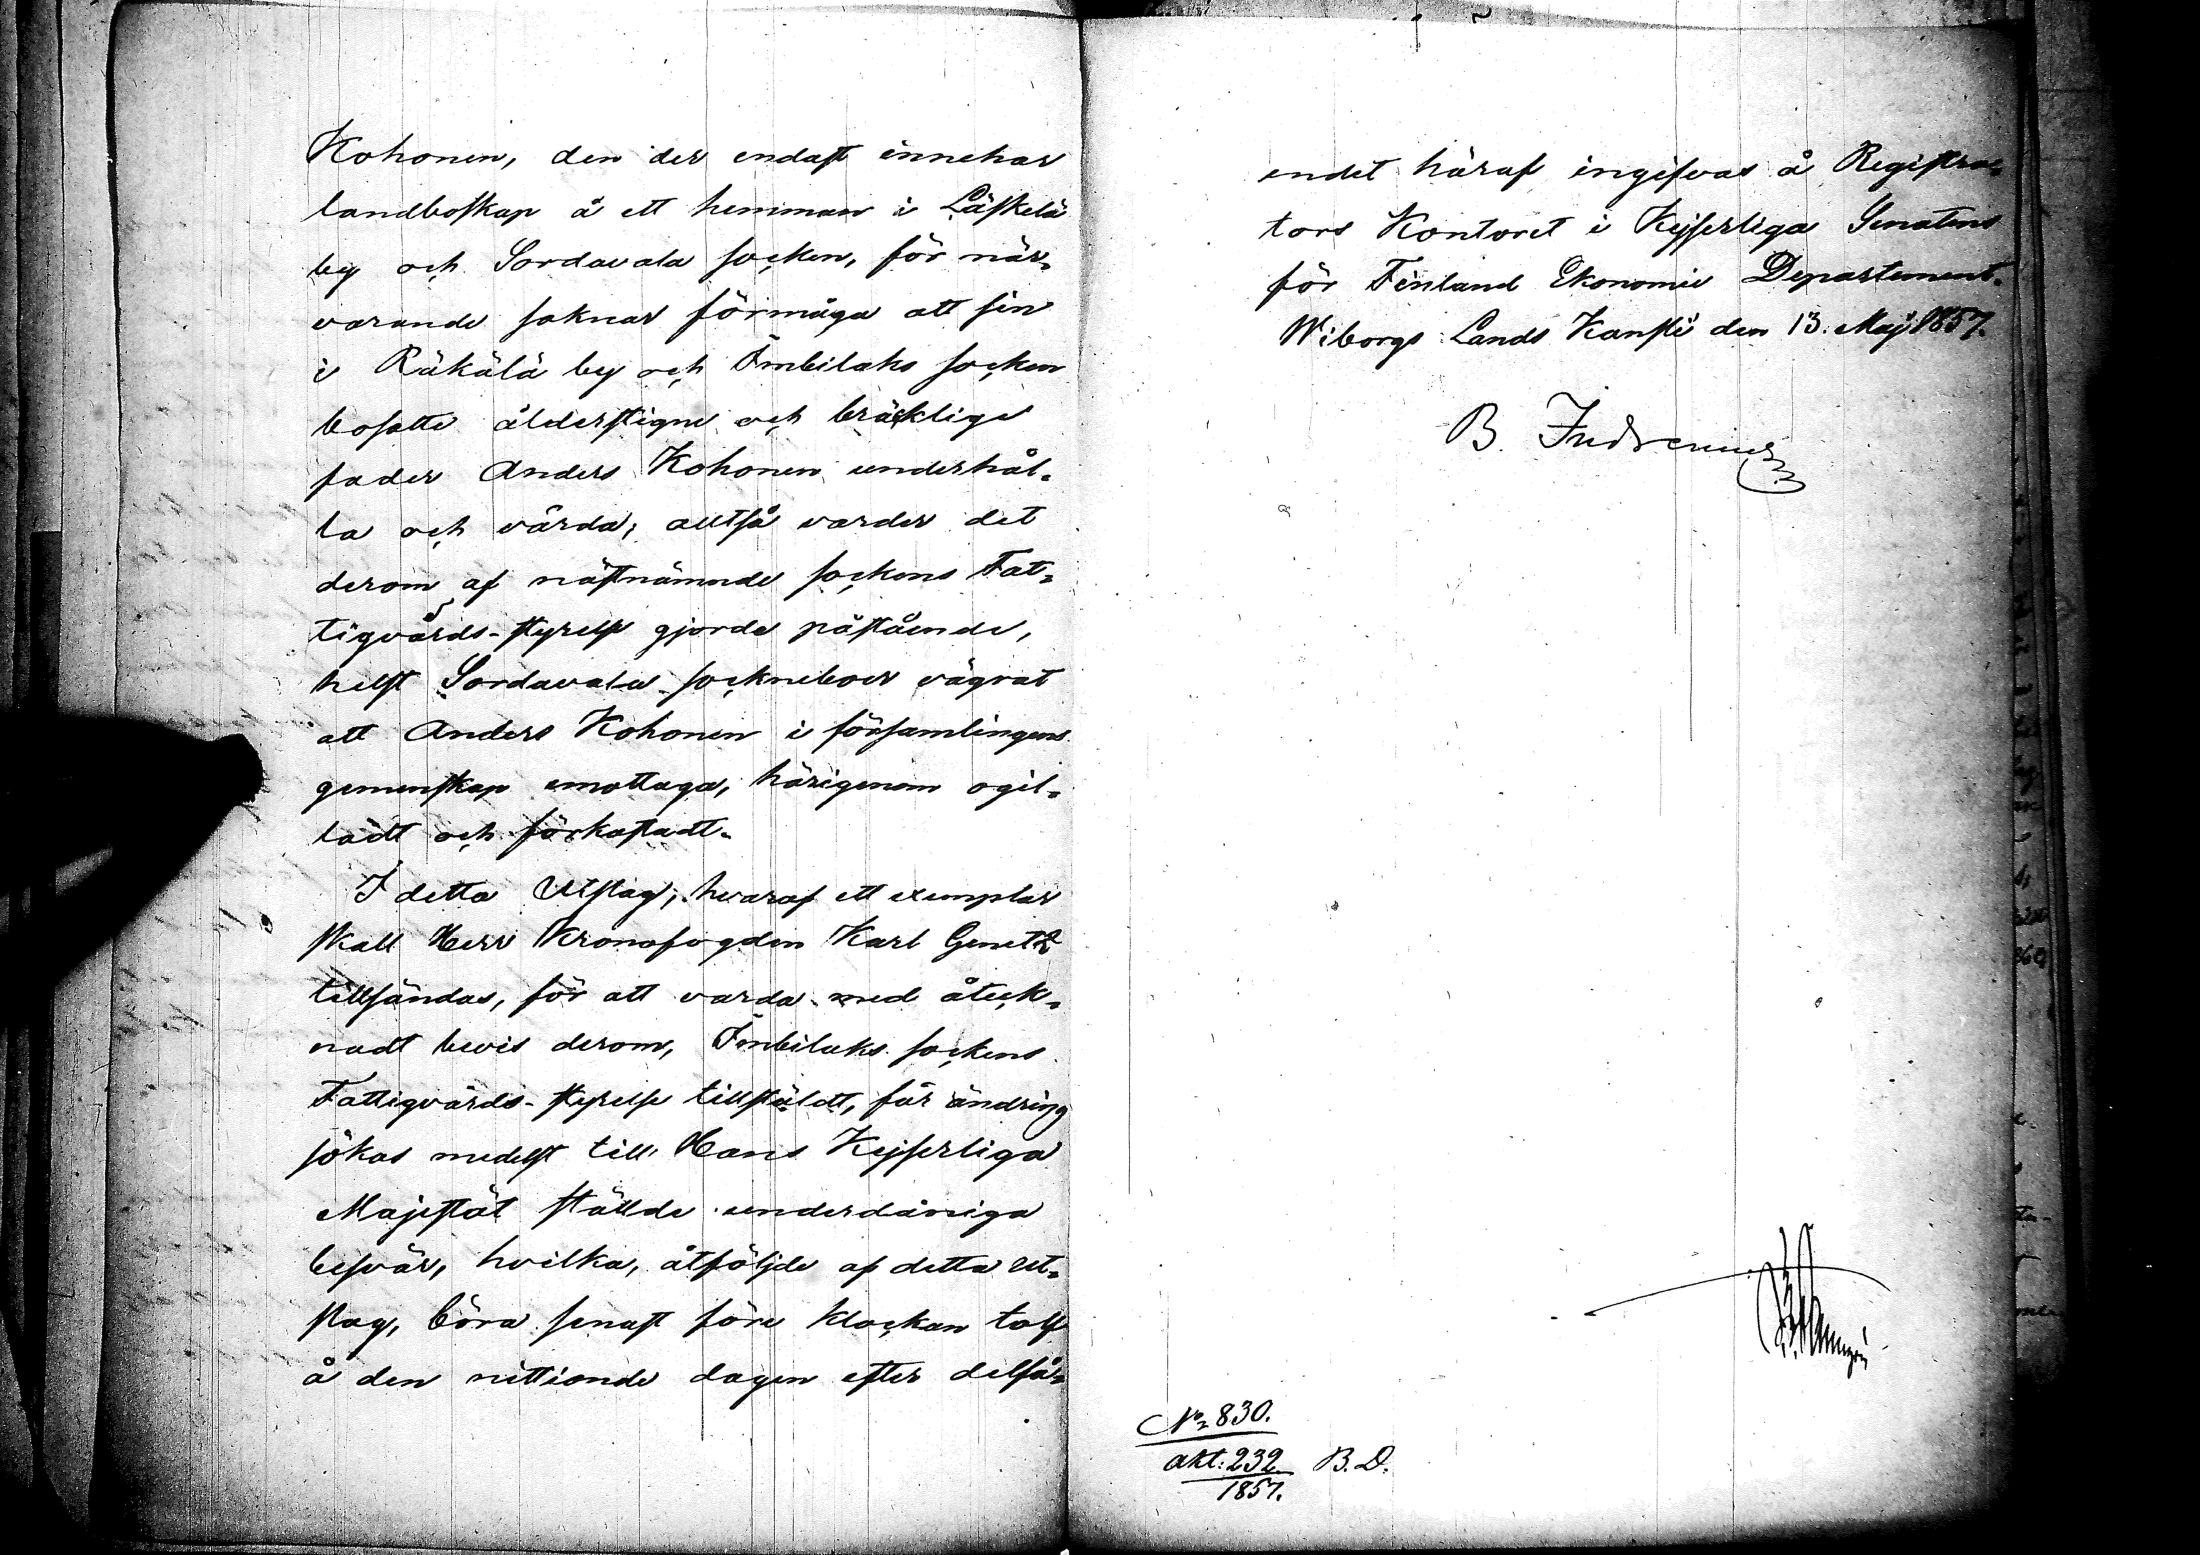 Kohonen, den der endast innehar
landboskap å ett hemman i Läskelä
by och Sordavala socken, för när-
varande saknar förmåga att sin
i Räkälä by och Imbilaks socken
bosatte ålderstigne och bräcklige
fader Anders Kohonen underhål-
la och vårda; alltså varder det
derom af nästnämnde sockens Fat-
tigvårds-styrelse gjorde påstående,
helst Sordavala sockneboer vägrat
att Anders Kohonen i församlingens
gemenskap emottaga, härigenom ogil-
ladt och förkastadt.
I detta Utslag, hvaraf ett exemplar
skall Herr Kronofogden Karl Genetz
tillsändas, för att varda med åteck-
nadt bevis derom, Imbilaks sockens
Fattigvårds-styrelse tillstäldt, får ändring
sökas medelst till Hans Kejserliga
Majestät stälde underdåniga
besvär, hvilka, åtföljde af detta Ut-
slag, böra senast före klockan tolf
å den nittionde dagen efter delfå-
endet häraf ingifvas å Registra-
tors Kontoret i Kejserliga Senatens
för Finland Ekonomie Departement.
Wiborgs Lands Kansli den 13. Maj 1857.
B. Indrenius
No 830.
akt: 232 B.D.
1857.